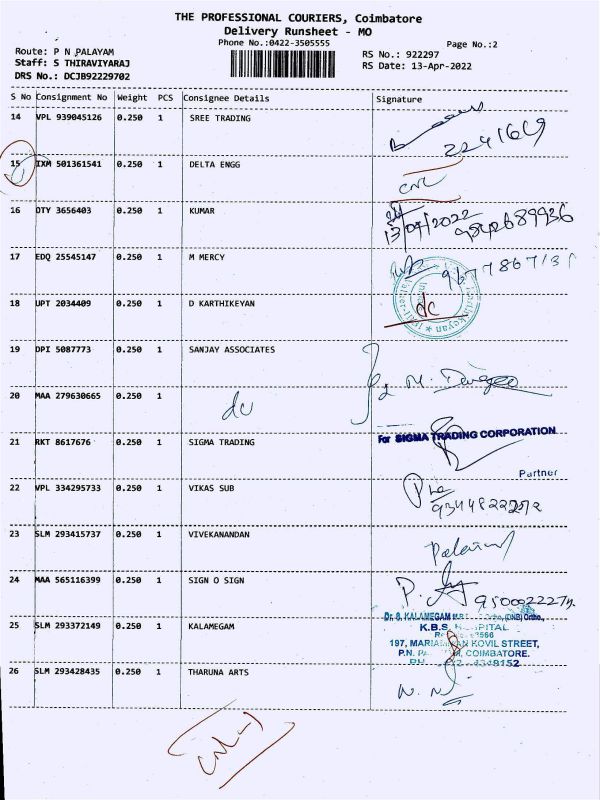 THE PROFESSIONAL COURIERS, Coimbatore
Delivery Runsheet - MO
Phone No.:0422-3505555
Page No.:2
Route: P N PALAYAM
Staff: S THIRAVIYARAJ
DRS No.: DCJB92229702
RS No.: 922297
RS Date: 13-Apr-2022
S No Consignment No Weight PCS Consignee Details Signature
14 VPL 939045126 0.250 1 SREE TRADING
224169
15 IXM 501361541 0.250 1 DELTA ENGG
CNL
16 OTY 3656403 0.250 1 KUMAR
13/04/2022 9842689936
17 EDQ 25545147 0.250 1 M MERCY
18 UPT 2034409 0.250 1 D KARTHIKEYAN
dc
19 DPI 5087773 0.250 1 SANJAY ASSOCIATES
20 MAA 279630665 0.250 1
dc
21 RKT 8617676 0.250 1 SIGMA TRADING
For SIGMA TRADING CORPORATION
Partner
22 VPL 334295733 0.250 1 VIKAS SUB
23 SLM 293415737 0.250 1 VIVEKANANDAN
24 MAA 565116399 0.250 1 SIGN O SIGN
25 SLM 293372149 0.250 1 KALAMEGAM
KALAMEGAM
K.B.S.
197, KOVIL STREET,
P.N. COIMBATORE.
26 SLM 293428435 0.250 1 THARUNA ARTS